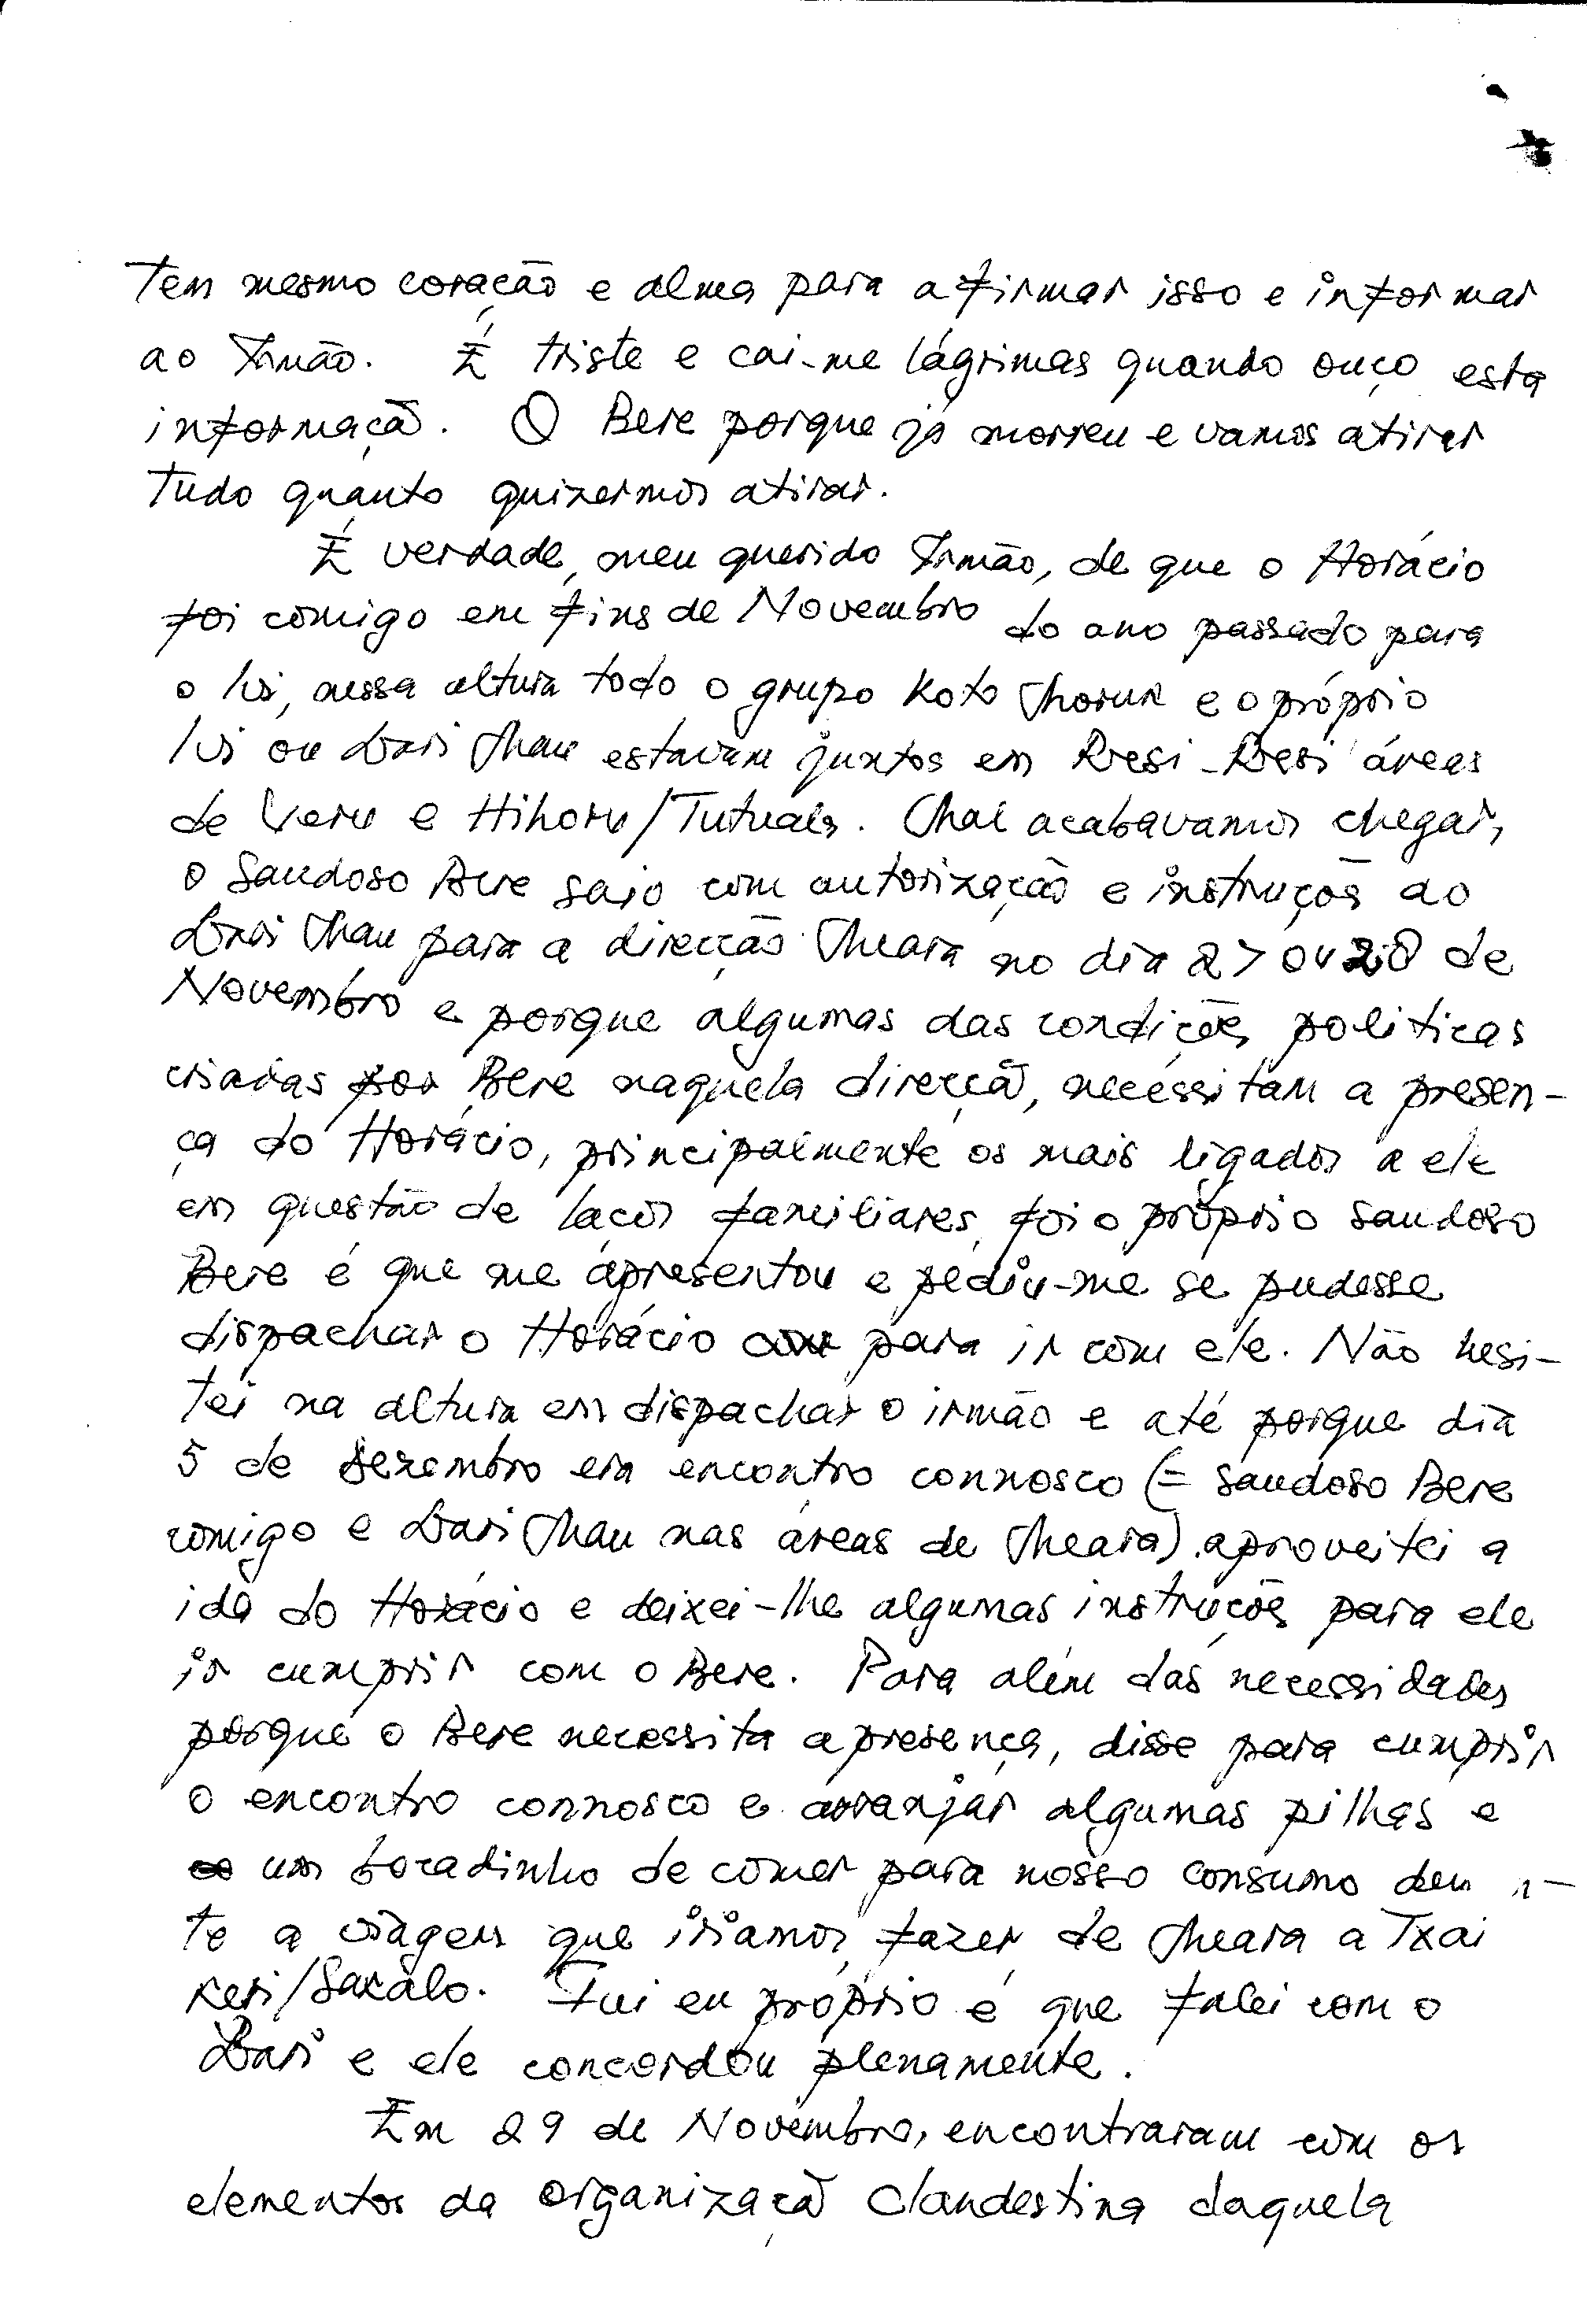 tem mesmo coração e alma para afirmar isso e informar
ao Irmão. É triste e cai-me lágrimas quando ouço esta
informação. O Bere porque já morreu e vamos atirar
tudo quanto quizermos atirar.
É verdade, meu querido Irmão, de que o Horácio
foi comigo em fins de Novembro do ano passado para
o nessa altura todo o grupo Koto e o próprio
ou estavam juntos em áreas
de Vero e Hihoru/Tutuala. Mal acabavamos chegar,
o Saudoso Bere saio com autorização e instruções ao
para a direcção Meara no dia 27 ou 28 de
Novembro e porque algumas das condições politicas
criadas por Bere naquela direcção, necessitam a presen-
ça do Horácio, principalmente os mais ligados a ele
em questão de laços familiares, foi o próprio saudoso
Bere é que me apresentou e pediu-me se pudesse
dispachar o Horácio para ir com ele. Não hesi-
tei na altura em dispachar o irmão e até porque dia
5 de Dezembro era encontro connosco (= saudoso Bere
comigo e nas áreas de Meara) aproveitei a
ida do Horácio e deixei-lhe algumas instruções para ele
ir cumprir com o Bere. Para além das necessidades
porque o Bere necessita a presença, disse para cumprir
o encontro connosco e arranjar algumas pilhas e
um bocadinho de comer para nosso consumo
te a viagem que iriamos fazer de Meara a Txai
Keri/Saxalo. Fui eu próprio é que falei com o
e ele concordou plenamente.
Em 29 de Novembro, encontraram com os
elementos da organização clandestina daquela